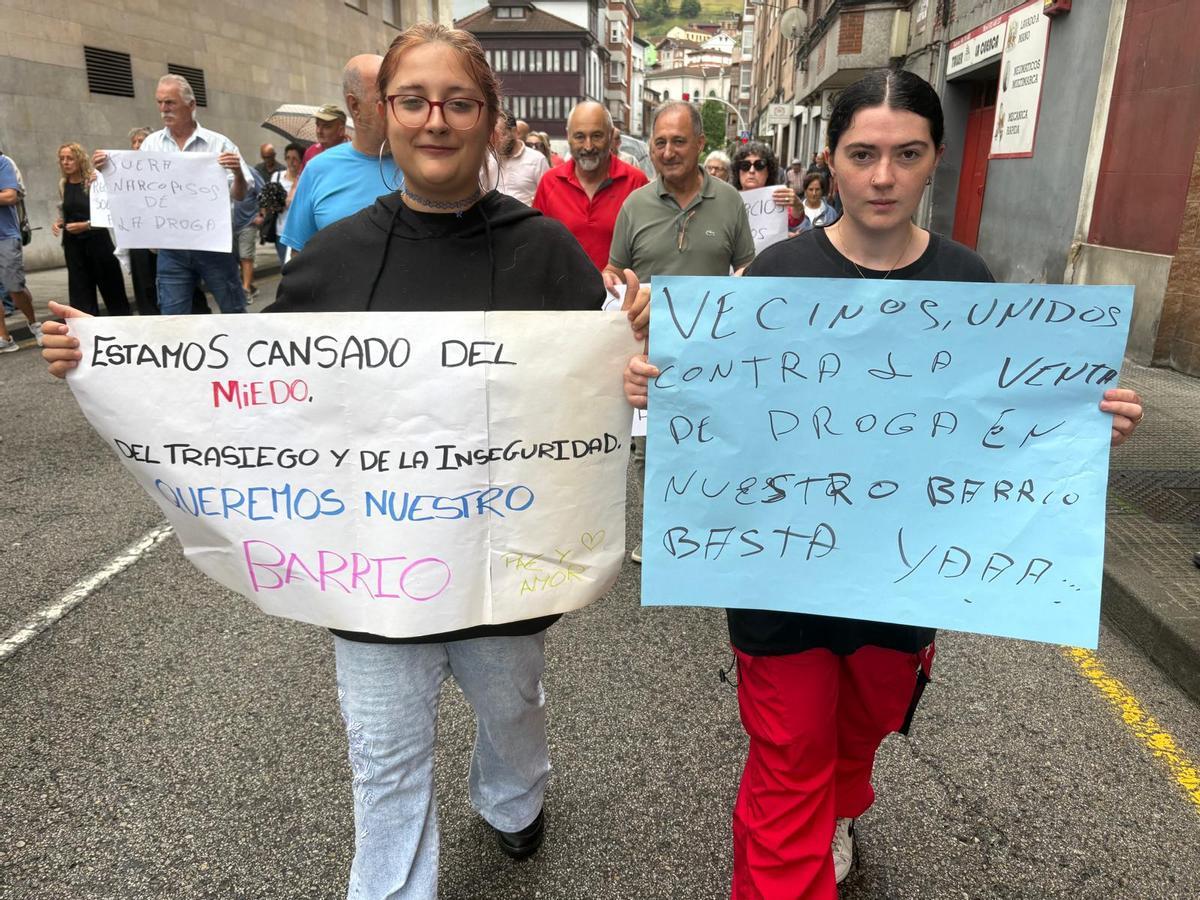 TALLER LA CUENCA
LAVADO A
MANO
NEUMATICOS
MULTIMARCA
MECANICA
RAPIDA
FUERA
NARCOPISOS
DE
LA DROGA
ESTAMOS CANSADO DEL
MiEDO.
DEL TRASIEGO Y DE LA INSEGURIDAD.
QUEREMOS NUESTRO
BARRIO
PAZ Y
AMOR
VECINOS, UNIDOS
CONTRA LA VENTA
DE DROGA EN
NUESTRO BARRIO
BASTA YAAA...